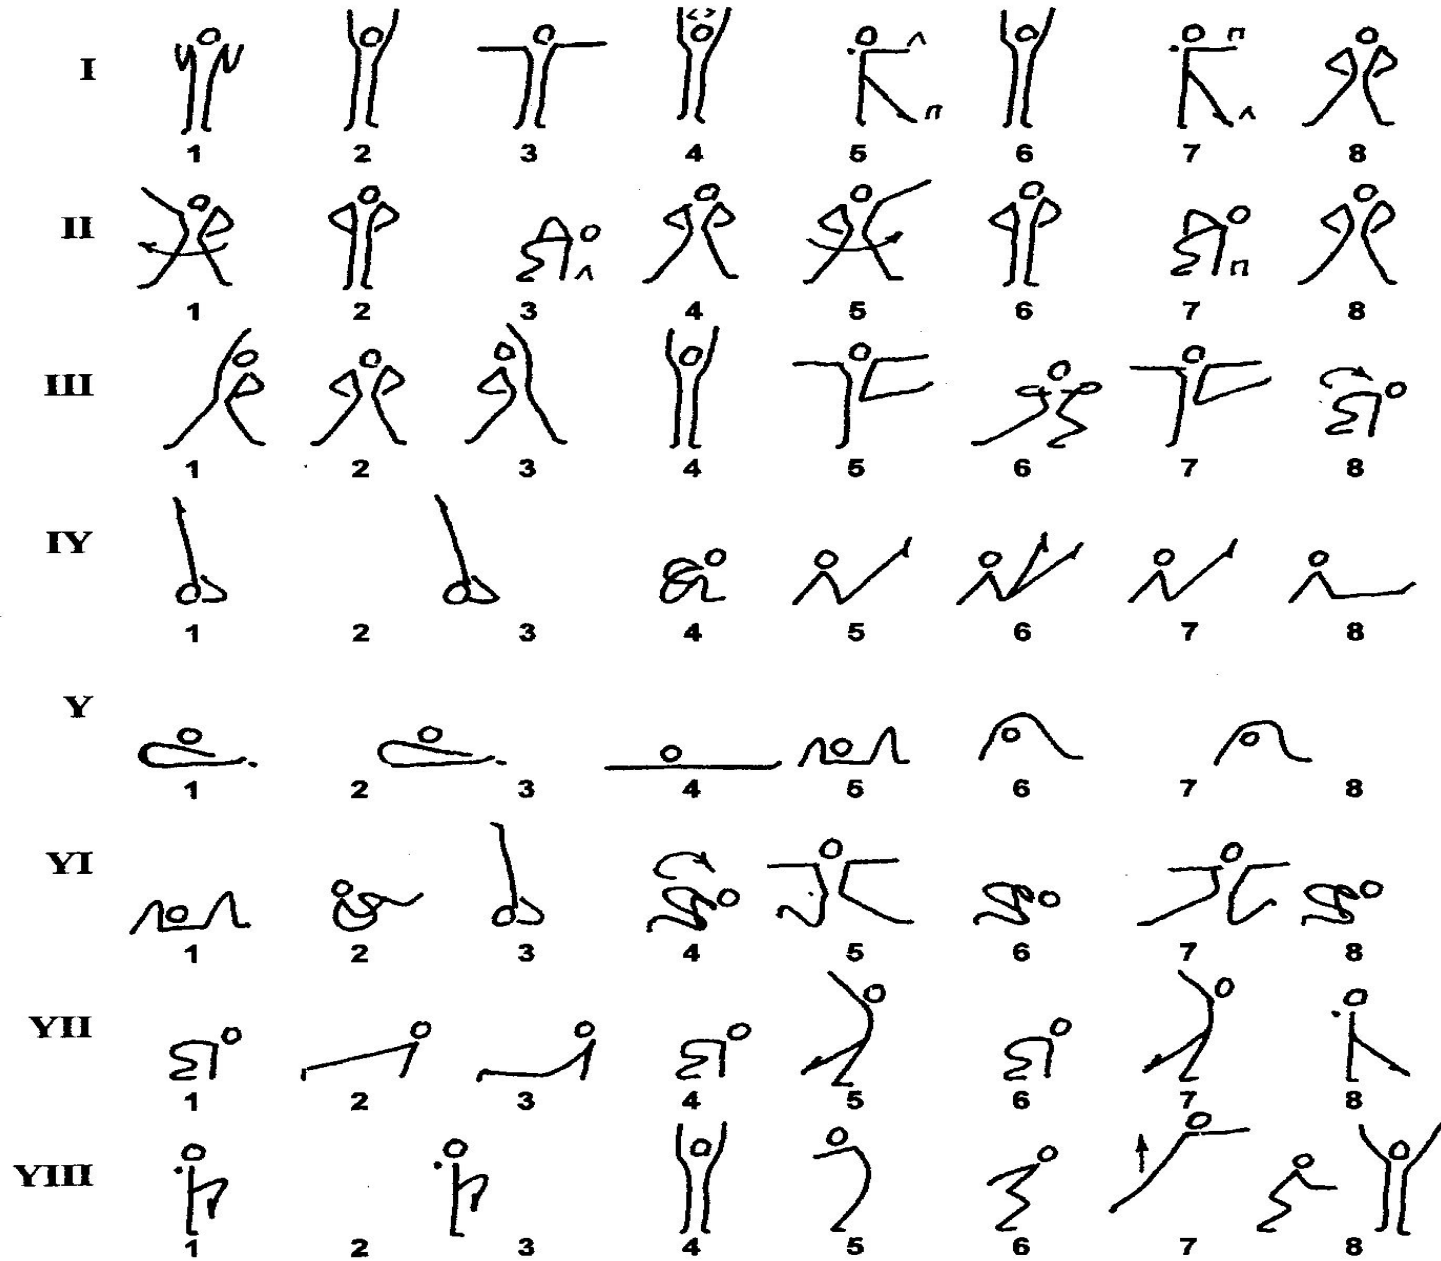 л п
I
п л
1 2 3 4 5 6 7 8
II
л п
1 2 3 4 5 6 7 8
III
1 2 3 4 5 6 7 8
IY
1 2 3 4 5 6 7 8
Y
1 2 3 4 5 6 7 8
YI
1 2 3 4 5 6 7 8
YII
1 2 3 4 5 6 7 8
YIII
1 2 3 4 5 6 7 8